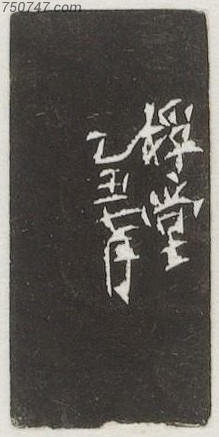 750747.com
桴堂
乙丑七月